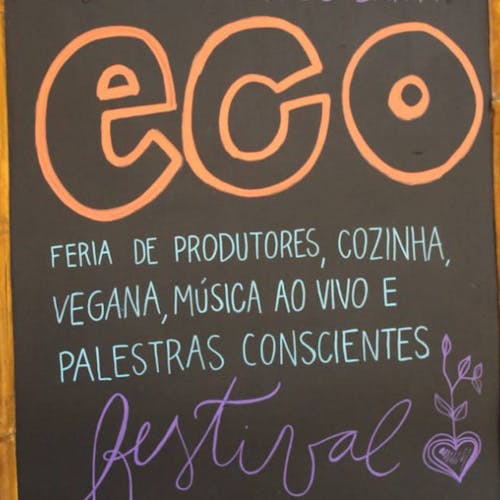 eco
FERIA DE PRODUTORES, COZINHA,
VEGANA, MÚSICA AO VIVO E
PALESTRAS CONSCIENTES
festival